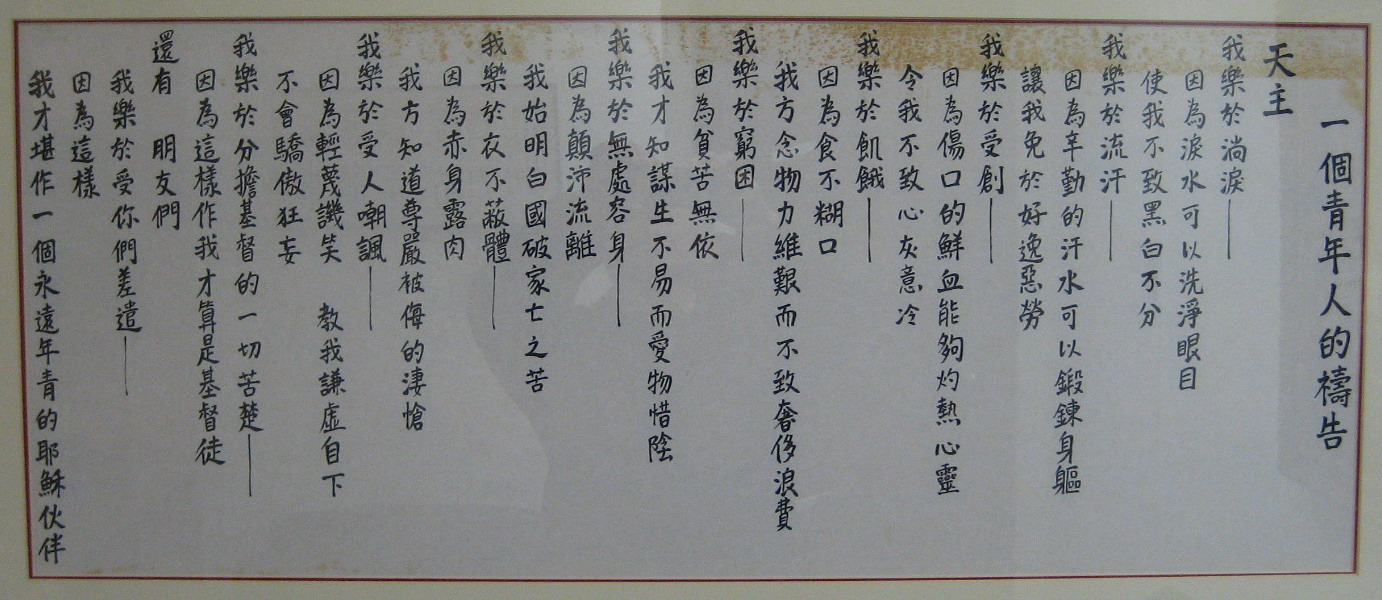 一個青年人的禱告
天主
我樂於淌淚——
因為淚水可以洗淨眼目
使我不致黑白不分
我樂於流汗——
因為辛勤的汗水可以鍛鍊身軀
讓我免於好逸惡勞
我樂於受創——
因為傷口的鮮血能夠灼熱心靈
令我不致心灰意冷
我樂於飢餓——
因為食不糊口
我方念物力維艱而不致奢侈浪費
我樂於窮困——
因為貧苦無依
我才知謀生不易而愛物惜陰
我樂於無處容身——
因為顛沛流離
我始明白國破家亡之苦
我樂於衣不蔽體——
因為赤身露肉
我方知道尊嚴被侮的淒愴
我樂於受人嘲諷——
因為輕蔑譏笑 教我謙虛自下
不會驕傲狂妄
我樂於分擔基督的一切苦楚——
因為這樣作我才算是基督徒
還有 朋友們
我樂於受你們差遣——
因為這樣
我才堪作一個永遠年青的耶穌伙伴